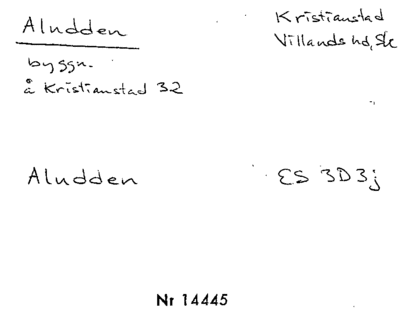 Aludden
Kristianstad
Villands hd, Sk
byggn.
å Kristianstad 32
Aludden
ES 3D3j
Nr 14445